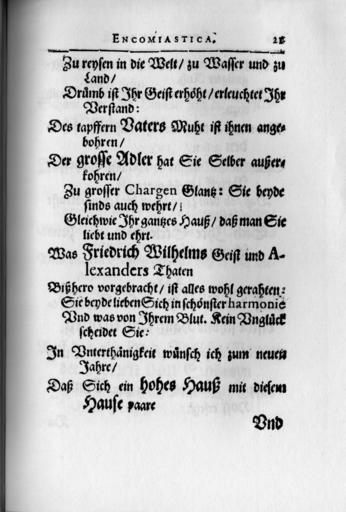 ENCOMIASTICA. 21
Zu reysen in die Welt/ zu Wasser und zu
Land/
Drümb ist Ihr Geist erhöht/ erleuchtet Ihr
Verstand:
Des tapffern Vaters Muht ist ihnen ange-
bohren/
Der grosse Adler hat Sie Selber außer-
kohren/
Zu grosser Chargen Glantz: Sie beyde
sinds auch wehrt/
Gleichwie Ihr gantzes Hauß/ daß man Sie
liebt und ehrt.
Was Friedrich Wilhelms Geist und A-
lexanders Thaten
Bißhero vorgebracht/ ist alles wohl gerahten:
Sie beyde lieben Sich in schönster harmonie
Und was von Ihrem Blut. Kein Unglück
scheidet Sie:
In Unterthänigkeit wünsch ich zum neuen
Jahre/
Daß Sich ein hohes Hauß mit diesem
Hause paare
Und